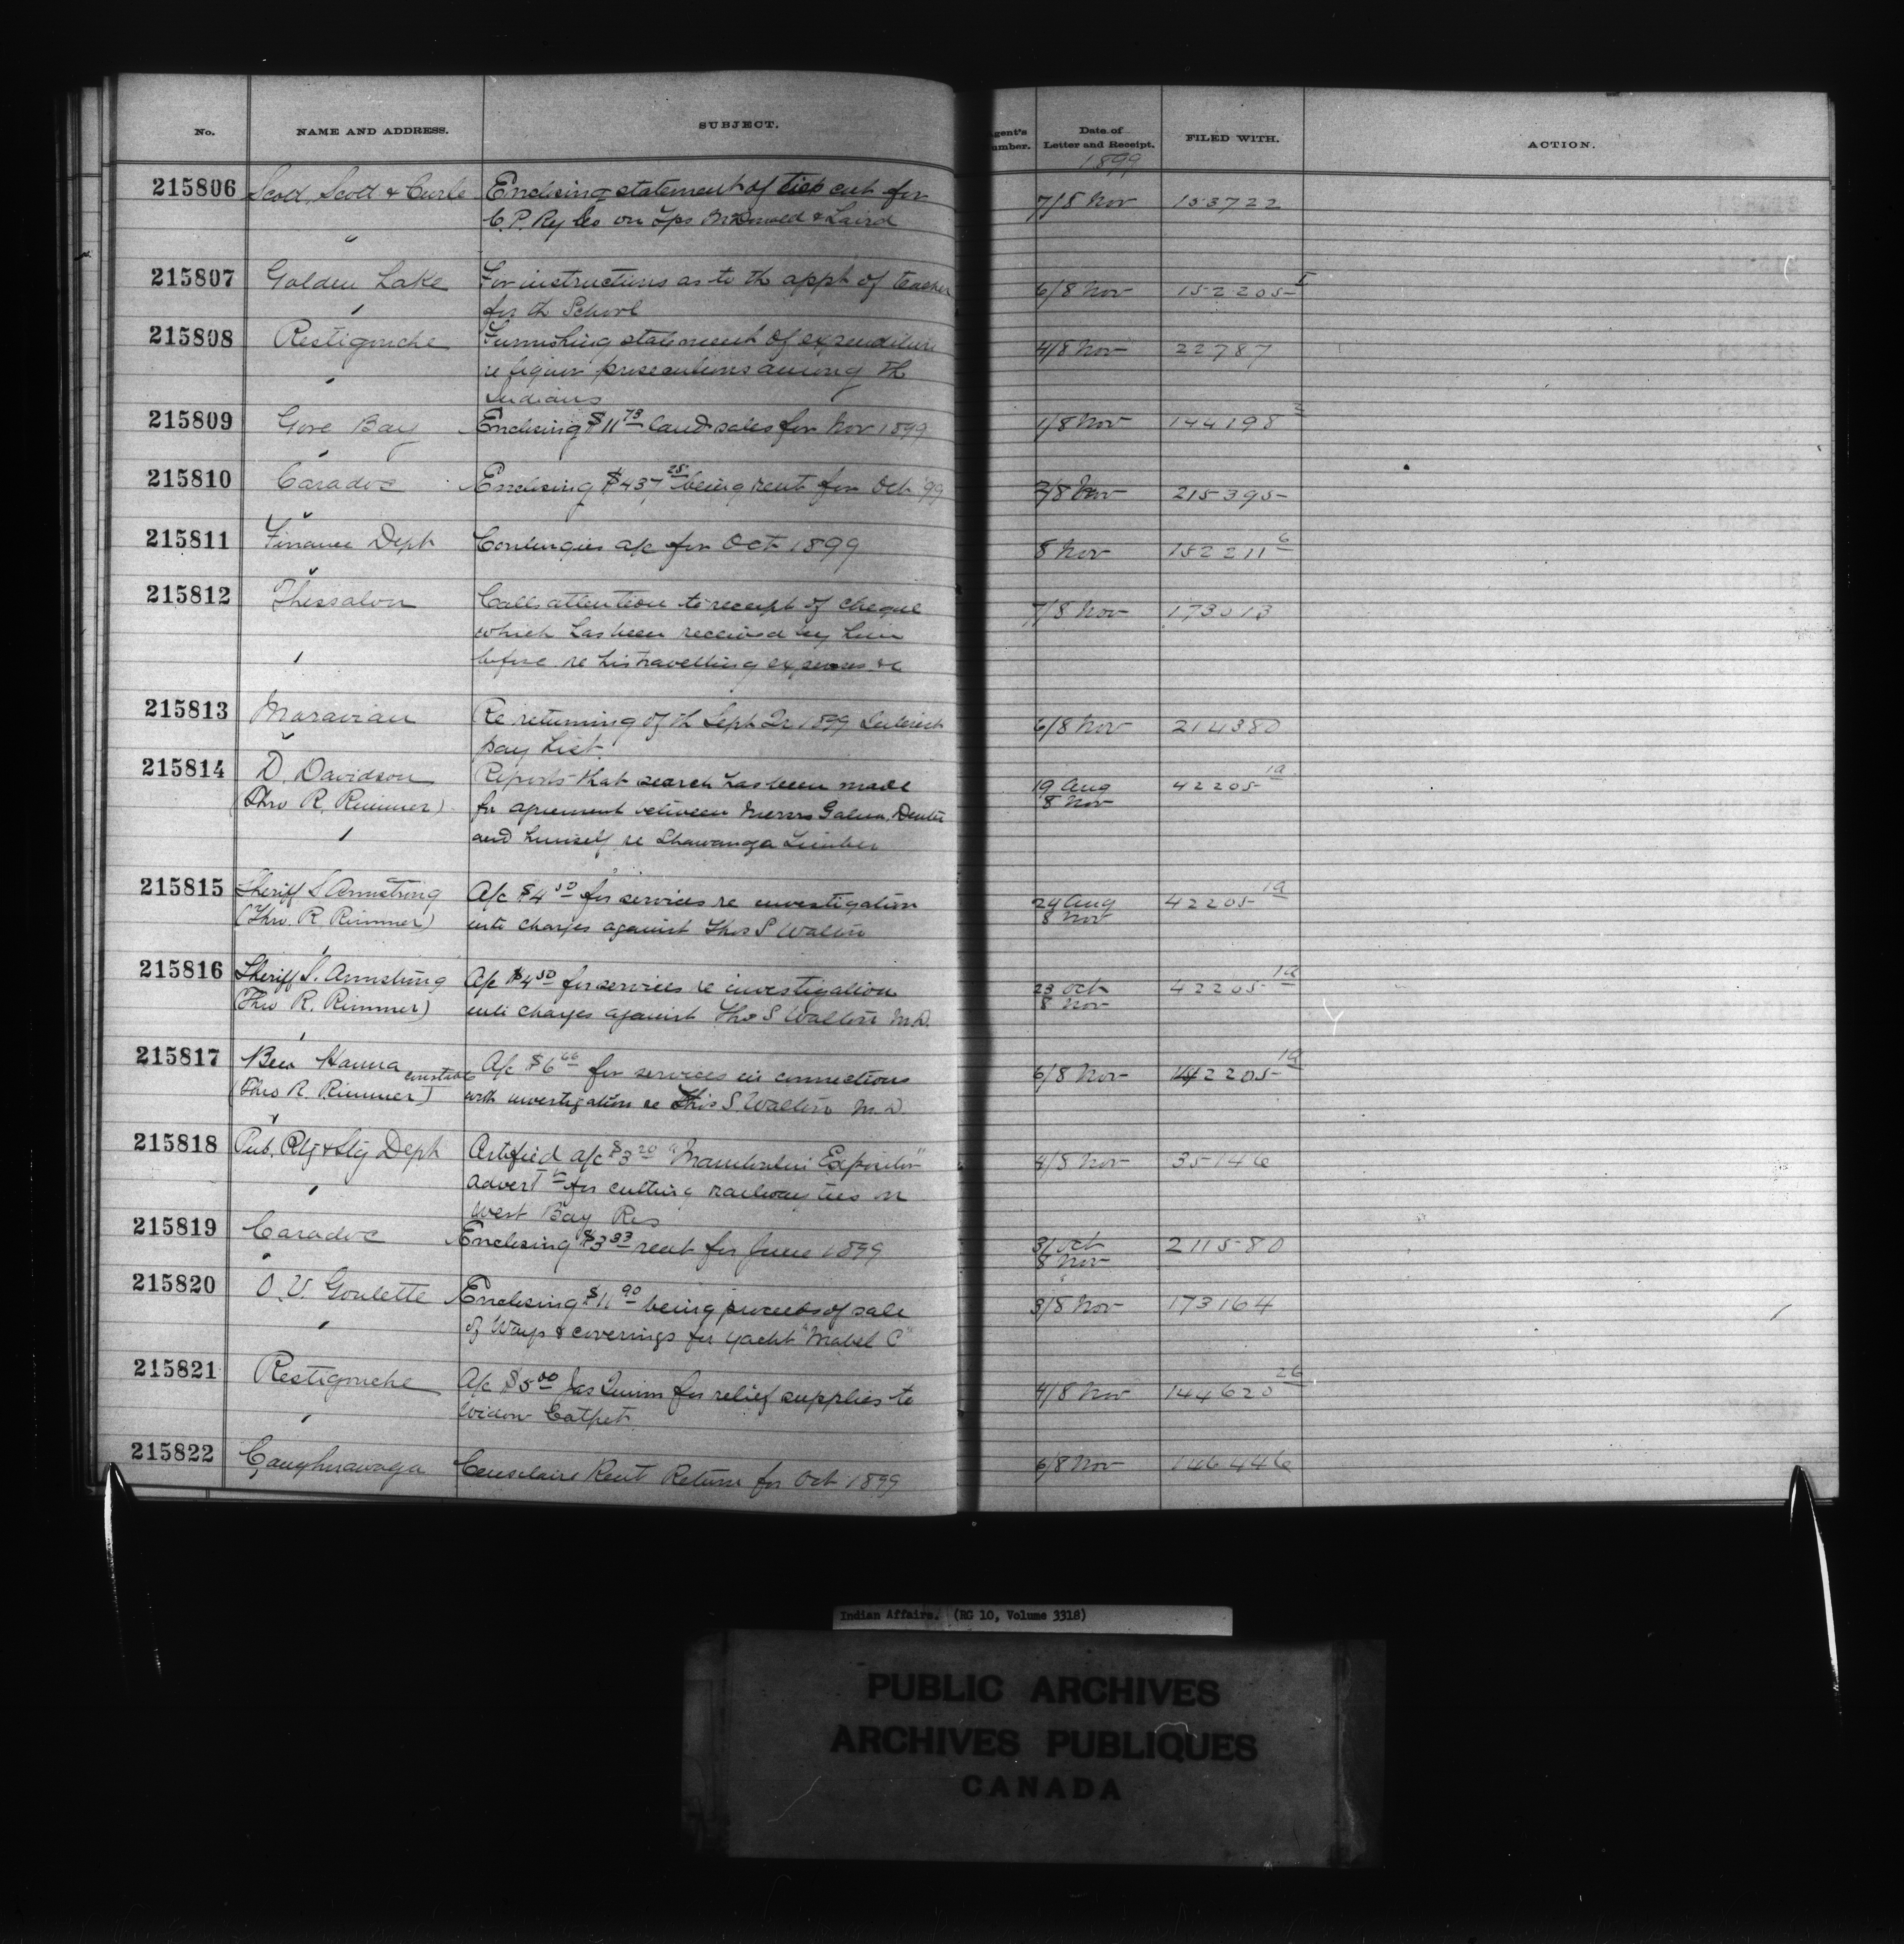 No. NAME AND ADDRESS. SUBJECT. Agent's Number. Date of Letter and Receipt. FILED WITH. ACTION.
1899
215806 Scott, Scott & Curle Enclosing statement of ties cut for 7/8 Nov 153722
C. P. Ry Co on Tps McDonald & Laird
"
215807 Golden Lake For instructions as to th appt of teacher 6/8 Nov 152205 I
for th School
215808 Restigouche Furnishing statement of expenditure 4/8 Nov 22787
re liquor prosecutions among th
Indians
215809 Gore Bay Enclosing $11 73 land sales for Nov 1899 1/8 Nov 144198 3
215810 Caradoc Enclosing $437 25 being rent for Oct '99 2/8 Nov 215395
215811 Finance Dept Contingies a/c for Oct 1899 8 Nov 152211 6
215812 Thessalon Calls attention to receipt of cheque 7/8 Nov 173013
which has been received by him
before re his travelling expenses &c
215813 Moravian Re returning of th Sept Qr 1899 Interest 6/8 Nov 214380
pay list
215814 D. Davidson Reports that search has been made 19 Aug 42205 1a
(Thro R. Rimmer) for agreement between Messrs Galna, 8 Nov
and himself re Shawanga Timber
215815 Sheriff S Armstrong A/c $4 50 for services re investigation 24 Aug 42205 1a
(Thro. R Rimmer) into charges against Thos S Walton 8 Nov
215816 Sheriff S. Armstrong A/c $4 50 for services re investigation 23 Oct 42205 1a
(Thro R. Rimmer) into charges against Thos S Walton M.D. 8 Nov
215817 Ben Hanna constable A/c $6 66 for services in connections 6/8 Nov 42205 1a
(Thro R. Rimmer) with investigation re Thos S. Walton M.D.
215818 Pub. Ptg & Sty Dept Certified a/c $3 20 "Manitoulin Expositor" 4/8 Nov 35146
advert't for cutting railway ties on
West Bay Res
215819 Caradoc Enclosing $3 33 rent for June 1899 31 Oct 211580
8 Nov
215820 O. V. Goulette Enclosing $11 90 being proceeds of sale 3/8 Nov 173164
of Ways & coverings for yacht "Mabel C"
215821 Restigouche A/c $5 00 Jas Quinn for relief supplies to 4/8 Nov 144620 26
Widow
215822 Caughnawaga Censitaire Rent Return for Oct 1899 6/8 Nov 146446
Indian Affairs. (RG 10, Volume 3318)
PUBLIC ARCHIVES
ARCHIVES PUBLIQUES
CANADA